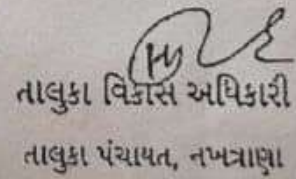 તાલુકા વિકાસ અધિકારી
તાલુકા પંચાયત, નખત્રાણા